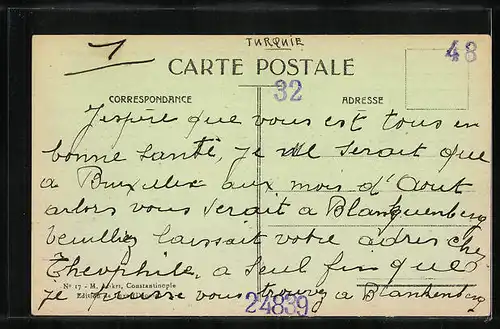 1
TURQUIE
48
CARTE POSTALE
32
CORRESPONDANCE
ADRESSE
J'espère que vous est tous en
bonne santé, je ne serait que
a Bruxelles aux mois d'Aout
arlors vous serait a Blanquenberg
veuilliez laissait votre adres chez
Théophile, a seul fin que
je puisse vous trouvez a Blankenberg
Nº 17 - M. , Constantinople
Edition
24839